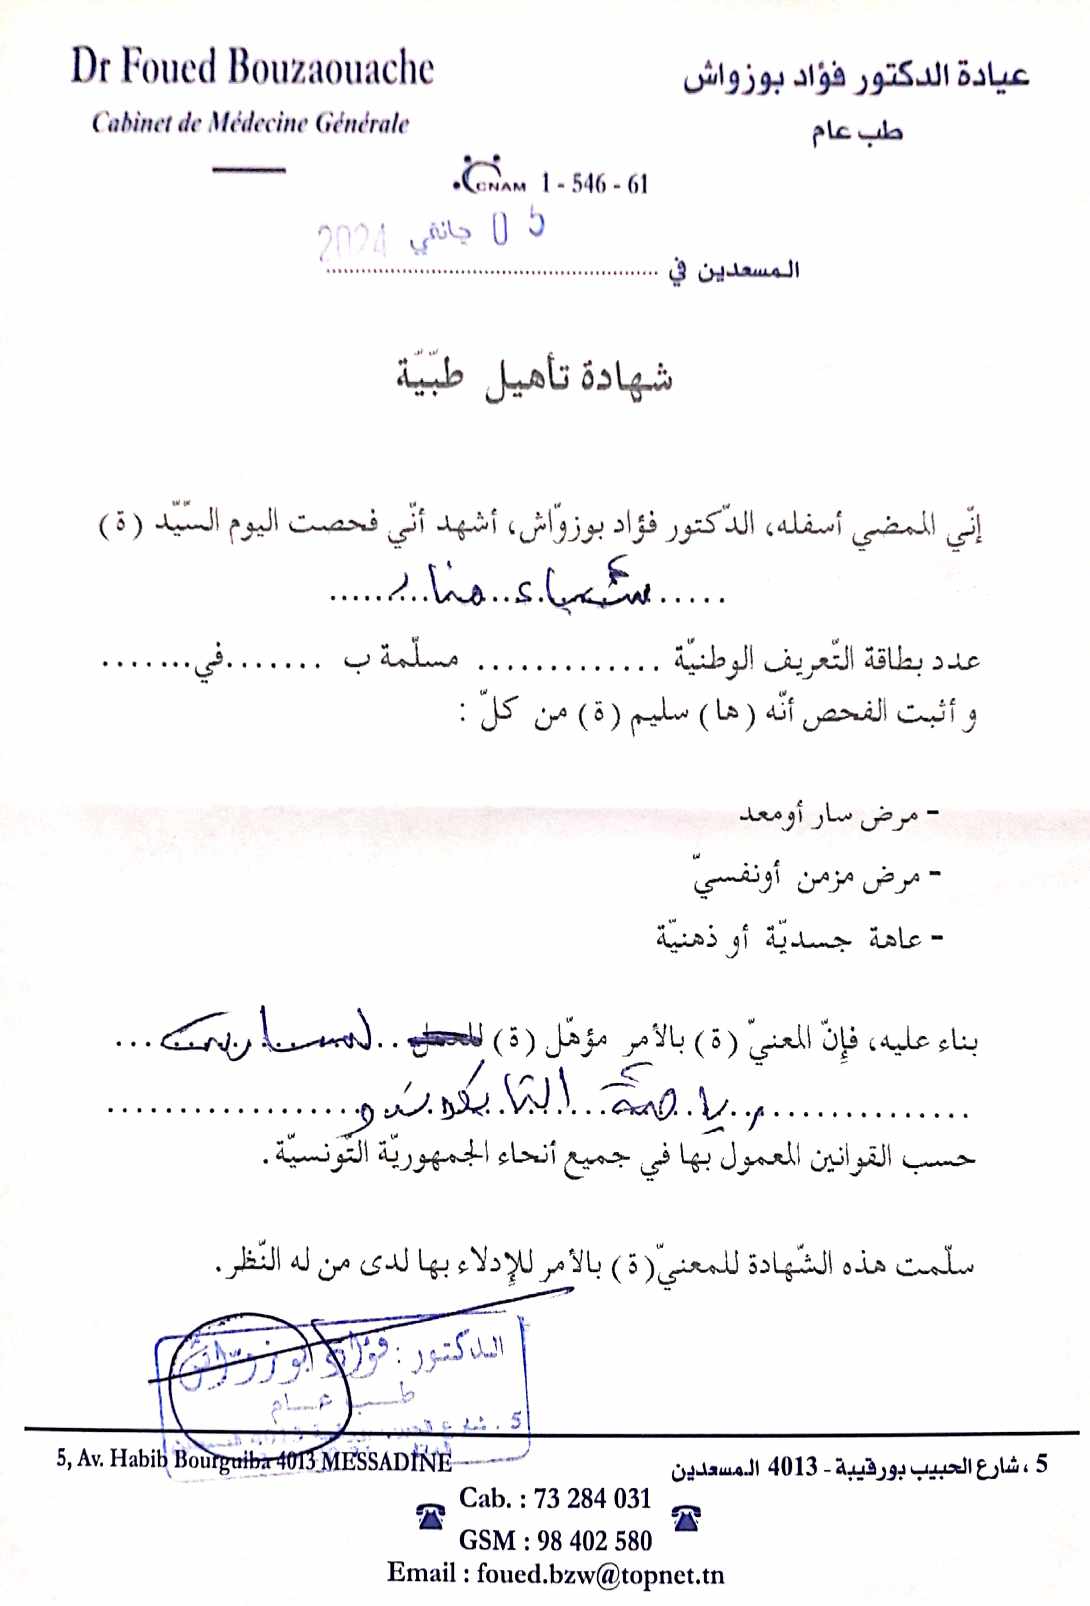 Dr Foued Bouzaouache
عيادة الدكتور فؤاد بوزواش
Cabinet de Médecine Générale
طب عام
CNAM 1 - 546 - 61
05 جانفي 2024
المسعدين في ........................
شهادة تأهيل طبّيّة
إنّي الممضي أسفله، الدّكتور فؤاد بوزوّاش، أشهد أنّي فحصت اليوم السّيّد (ة)
..... شيماء منار ......
عدد بطاقة التّعريف الوطنيّة ............. مسلّمة ب .......في.......
و أثبت الفحص أنّه (ها) سليم (ة) من كلّ :
- مرض سار أومعد
- مرض مزمن أونفسيّ
- عاهة جسديّة أو ذهنيّة
بناء عليه، فإنّ المعنيّ (ة) بالأمر مؤهّل (ة) للعمل ..
رياضة التايكوندو
حسب القوانين المعمول بها في جميع أنحاء الجمهوريّة التّونسيّة.
سلّمت هذه الشّهادة للمعنيّ(ة) بالأمر للإدلاء بها لدى من له النّظر.
الدكتور : فؤاد بوزواش
طب عام
5, Av. Habib Bourguiba 4013 MESSADINE
5 ، شارع الحبيب بورقيبة - 4013 المسعدين
Cab. : 73 284 031
GSM : 98 402 580
Email : foued.bzw@topnet.tn